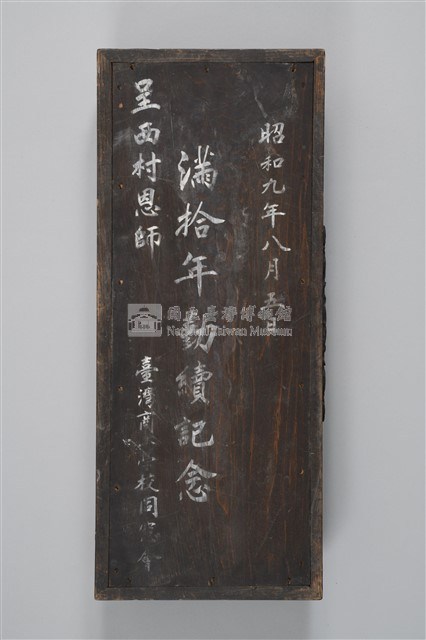 昭和九年八月
満拾年勤續記念
呈西村恩師
臺灣商校同窓会
國立臺灣博物館
National Taiwan Museum